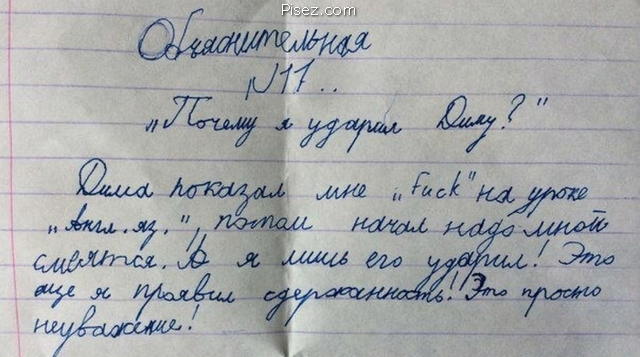 Pisez.com
Объяснительная
№17..
„Почему я ударил Диму?"
Дима показал мне „Fuck" на уроке
„Англ. яз.", потом начал надо мной
смеятся. А я лишь его ударил! Это
еще я проявил сдержанность!! Это просто
неуважение!